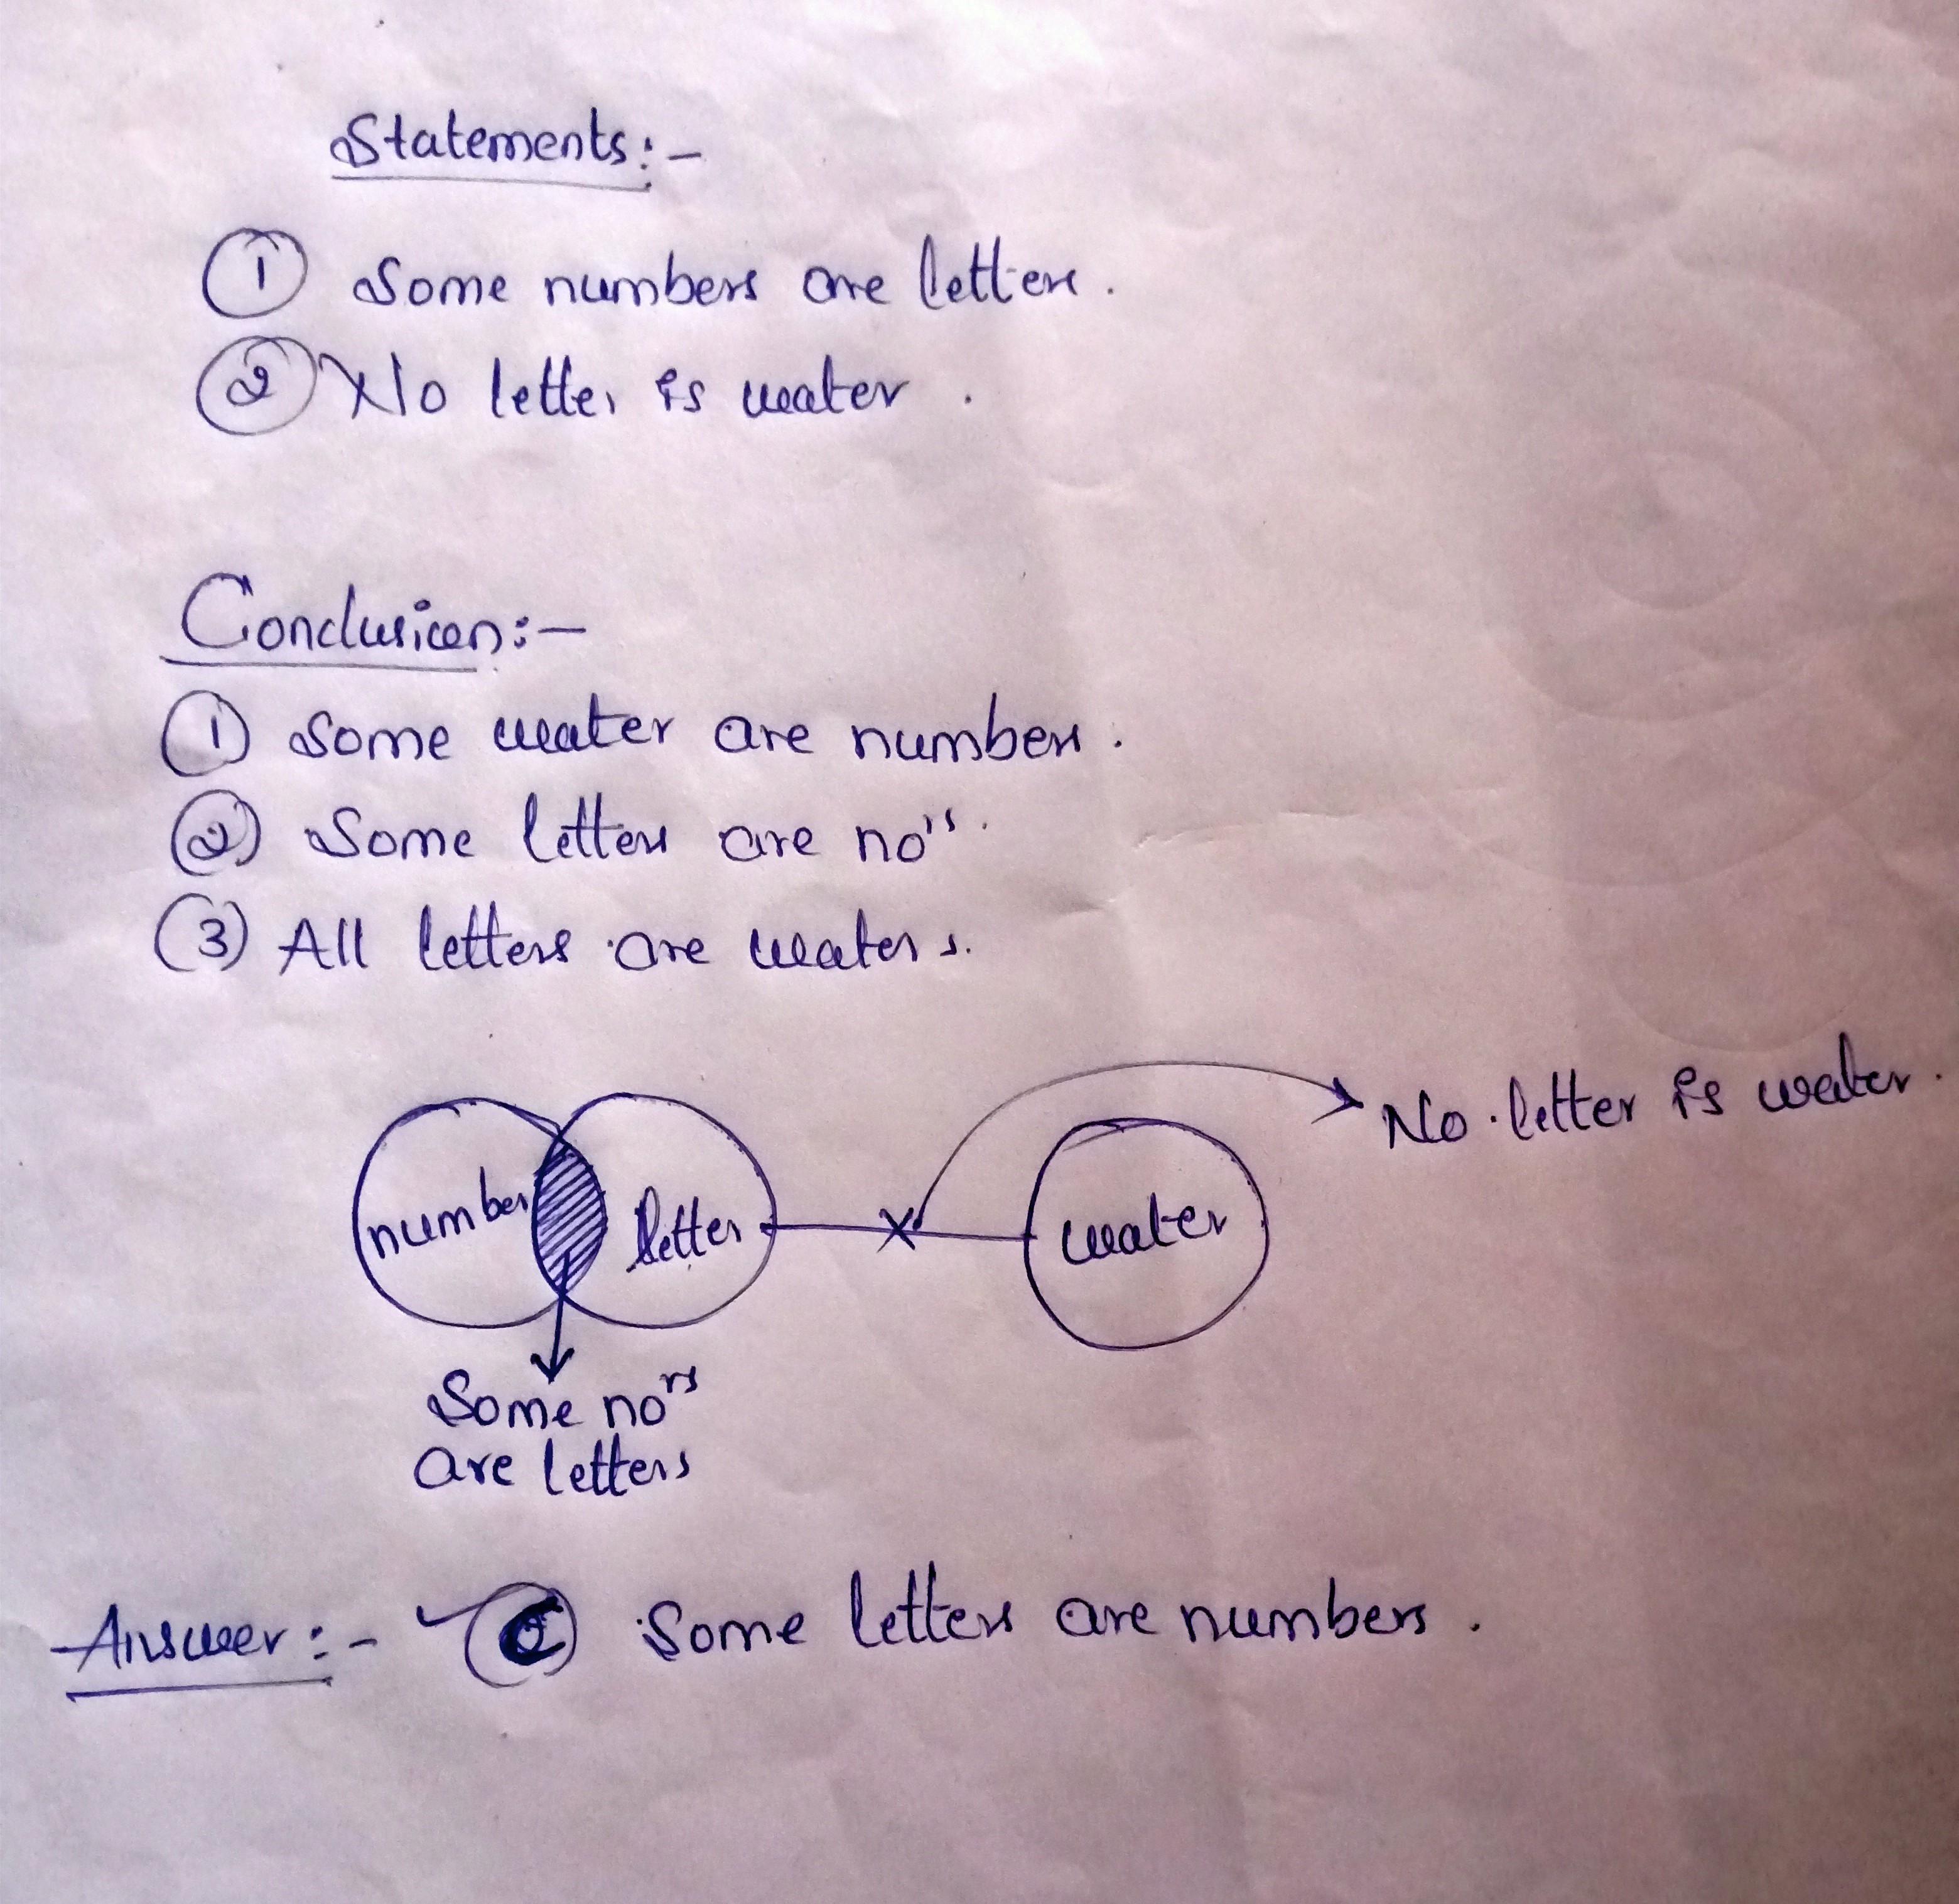 Statements:-
① Some numbers are letters.
② No letter is water.
Conclusion:-
① Some water are numbers.
② Some letters are no's.
③ All letters are waters.
No letter is water.
number letter water
Some no's
are letters
Answer:- Some letters are numbers.